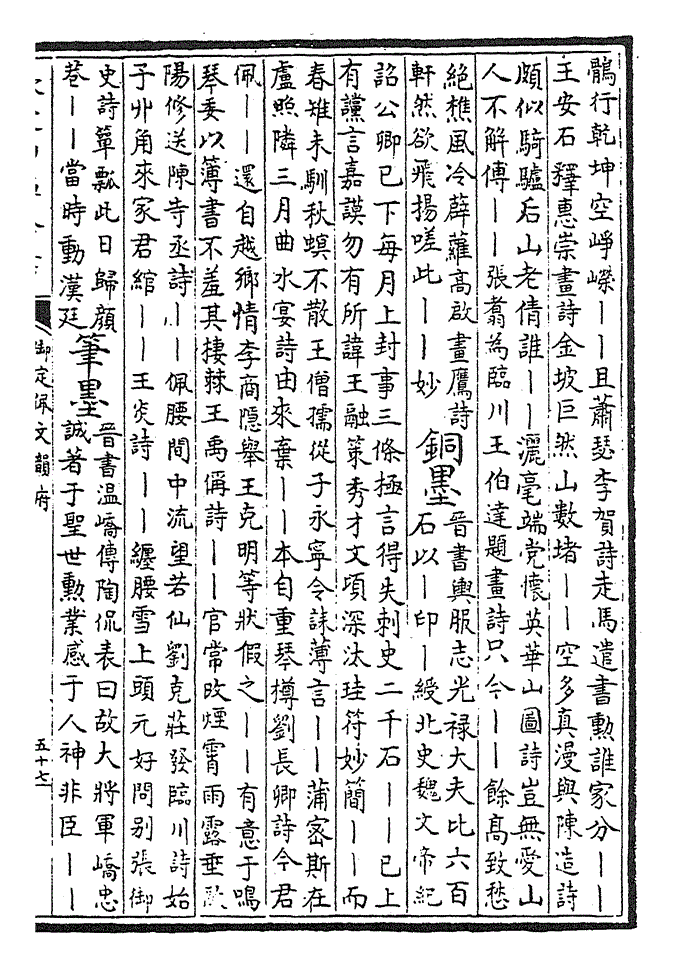 鶻行乾坤空崢嶸｜｜且蕭瑟李賀詩走馬遣書勲誰家分｜｜
王安石釋惠崇畫詩金坡巨然山數堵｜｜空多真漫與陳造詩
頗似騎驢后山老倩誰｜｜灑毫端党懷英華山圖詩豈無愛山
人不解傳｜｜張翥為臨川王伯達題畫詩只今｜｜餘高致愁
絶樵風冷薜蘿高啟畫鷹詩
軒然欲飛揚嗟此｜｜妙
銅墨
晉書輿服志光禄大夫比六百
石以｜印｜綬北史魏文帝紀
詔公卿已下每月上封事三條極言得失刺史二千石｜｜已上
有讜言嘉謨勿有所諱王融策秀才文頃深汰珪符妙簡｜｜而
春雉未馴秋螟不散王僧孺從子永寧令誄薄言｜｜蒲宻斯在
盧照隣三月曲水宴詩由來棄｜｜本自重琴樽劉長卿詩今君
佩｜｜還自越鄉情李商隠舉王克明等狀假之｜｜有意于鳴
琴委以簿書不羞其捿棘王禹偁詩｜｜官常改煙霄雨露垂歐
陽修送陳寺丞詩｜｜佩腰間中流望若仙劉克莊發臨川詩始
子丱角來家君綰｜｜王炎詩｜｜纒腰雪上頭元好問别張御
史詩簞瓢此日歸顔
巷｜｜當時動漢廷
筆墨
晉書温嶠傳陶侃表曰故大將軍嶠忠
誠著于聖世勲業感于人神非臣｜｜
御定佩文韻府
五十七